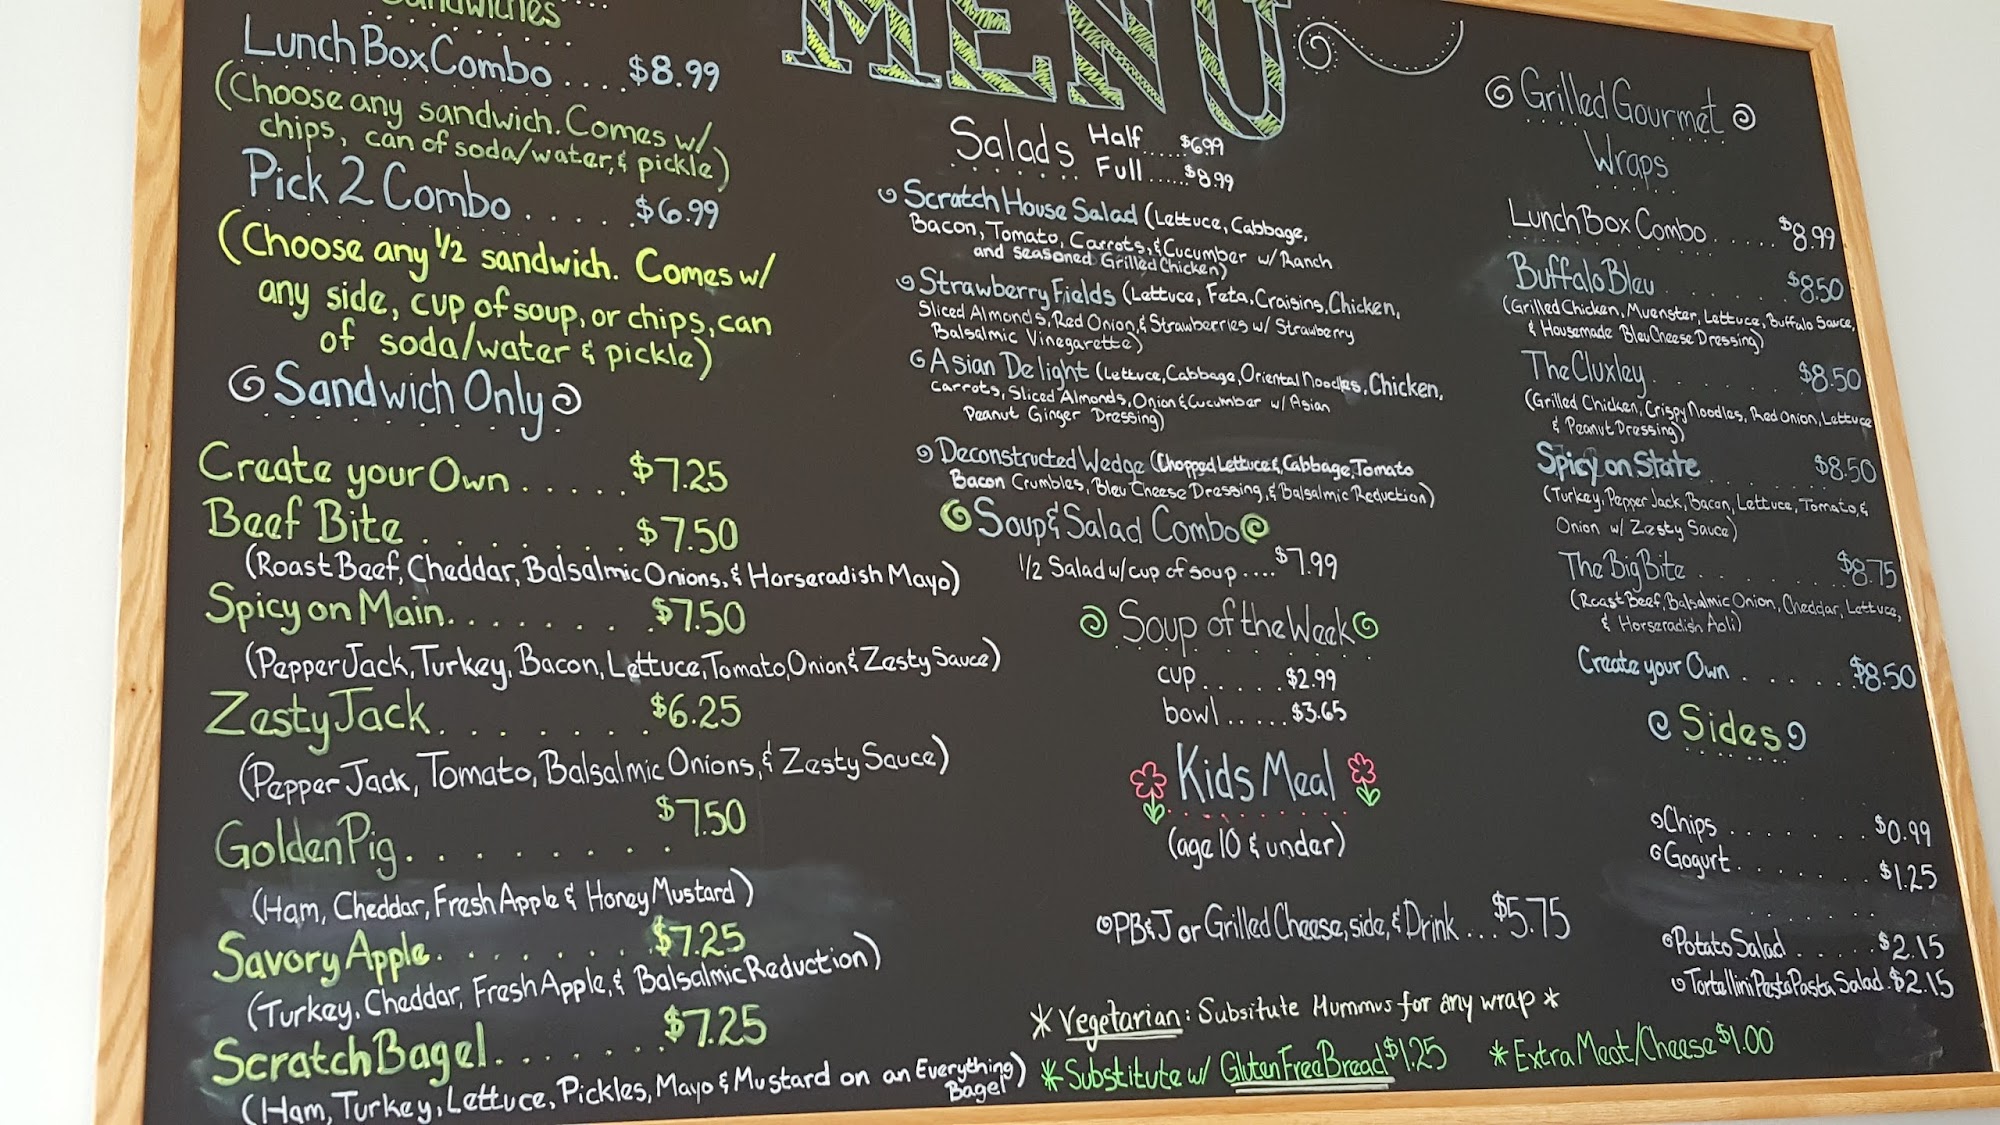 Sandwiches
Lunch Box Combo .... $8.99
(Choose any sandwich. Comes w/
chips, can of soda/water, & pickle)
Pick 2 Combo ..... $6.99
(Choose any 1/2 sandwich. Comes w/
any side, cup of soup, or chips, can
of soda/water & pickle)
Sandwich Only
Create your Own ..... $7.25
Beef Bite ....... $7.50
(Roast Beef, Cheddar, Balsalmic Onions, & Horseradish Mayo)
Spicy on Main....... $7.50
(Pepper Jack, Turkey, Bacon, Lettuce, Tomato, Onion & Zesty Sauce)
Zesty Jack........ $6.25
(Pepper Jack, Tomato, Balsalmic Onions, & Zesty Sauce)
Golden Pig........ $7.50
(Ham, Cheddar, Fresh Apple & Honey Mustard)
Savory Apple....... $7.25
(Turkey, Cheddar, Fresh Apple, & Balsalmic Reduction)
Scratch Bagel....... $7.25
(Ham, Turkey, Lettuce, Pickles, Mayo & Mustard on an Everything
Bagel)
MENU
Salads Half ..... $6.99
Full ...... $8.99
Scratch House Salad (Lettuce, Cabbage,
Bacon, Tomato, Carrots, & Cucumber w/ Ranch
and seasoned Grilled Chicken)
Strawberry Fields (Lettuce, Feta, Craisins, Chicken,
Sliced Almonds, Red Onion, & Strawberries w/ Strawberry
Balsalmic Vinegarette)
Asian Delight (Lettuce, Cabbage, Oriental Noodles, Chicken,
Carrots, Sliced Almonds, Onion & Cucumber w/ Asian
Peanut Ginger Dressing)
Deconstructed Wedge (Chopped Lettuce & Cabbage, Tomato
Bacon Crumbles, Bleu Cheese Dressing, & Balsalmic Reduction)
Soup & Salad Combo
1/2 Salad w/ cup of soup .... $7.99
Soup of the Week
cup ..... $2.99
bowl ..... $3.65
Kids Meal
(age 10 & under)
PB&J or Grilled Cheese, side, & Drink ... $5.75
*Vegetarian: Subsitute Hummus for any wrap*
*Substitute w/ Gluten Free Bread $1.25
*Extra Meat/Cheese $1.00
Grilled Gourmet
Wraps
Lunch Box Combo ...... $8.99
Buffalo Bleu ........ $8.50
(Grilled Chicken, Muenster, Lettuce, Buffalo Sauce,
& Housemade Bleu Cheese Dressing)
The Cluxley ........ $8.50
(Grilled Chicken, Crispy Noodles, Red Onion, Lettuce
& Peanut Dressing)
Spicy on State ....... $8.50
(Turkey, Pepper Jack, Bacon, Lettuce, Tomato, &
Onion w/ Zesty Sauce)
The Big Bite ........ $8.75
(Roast Beef, Balsalmic Onion, Cheddar, Lettuce,
& Horseradish Aoli)
Create your Own ...... $8.50
Sides
Chips ........ $0.99
Gogurt ........ $1.25
Potato Salad ..... $2.15
Tortellini Pesto Pasta Salad . $2.15